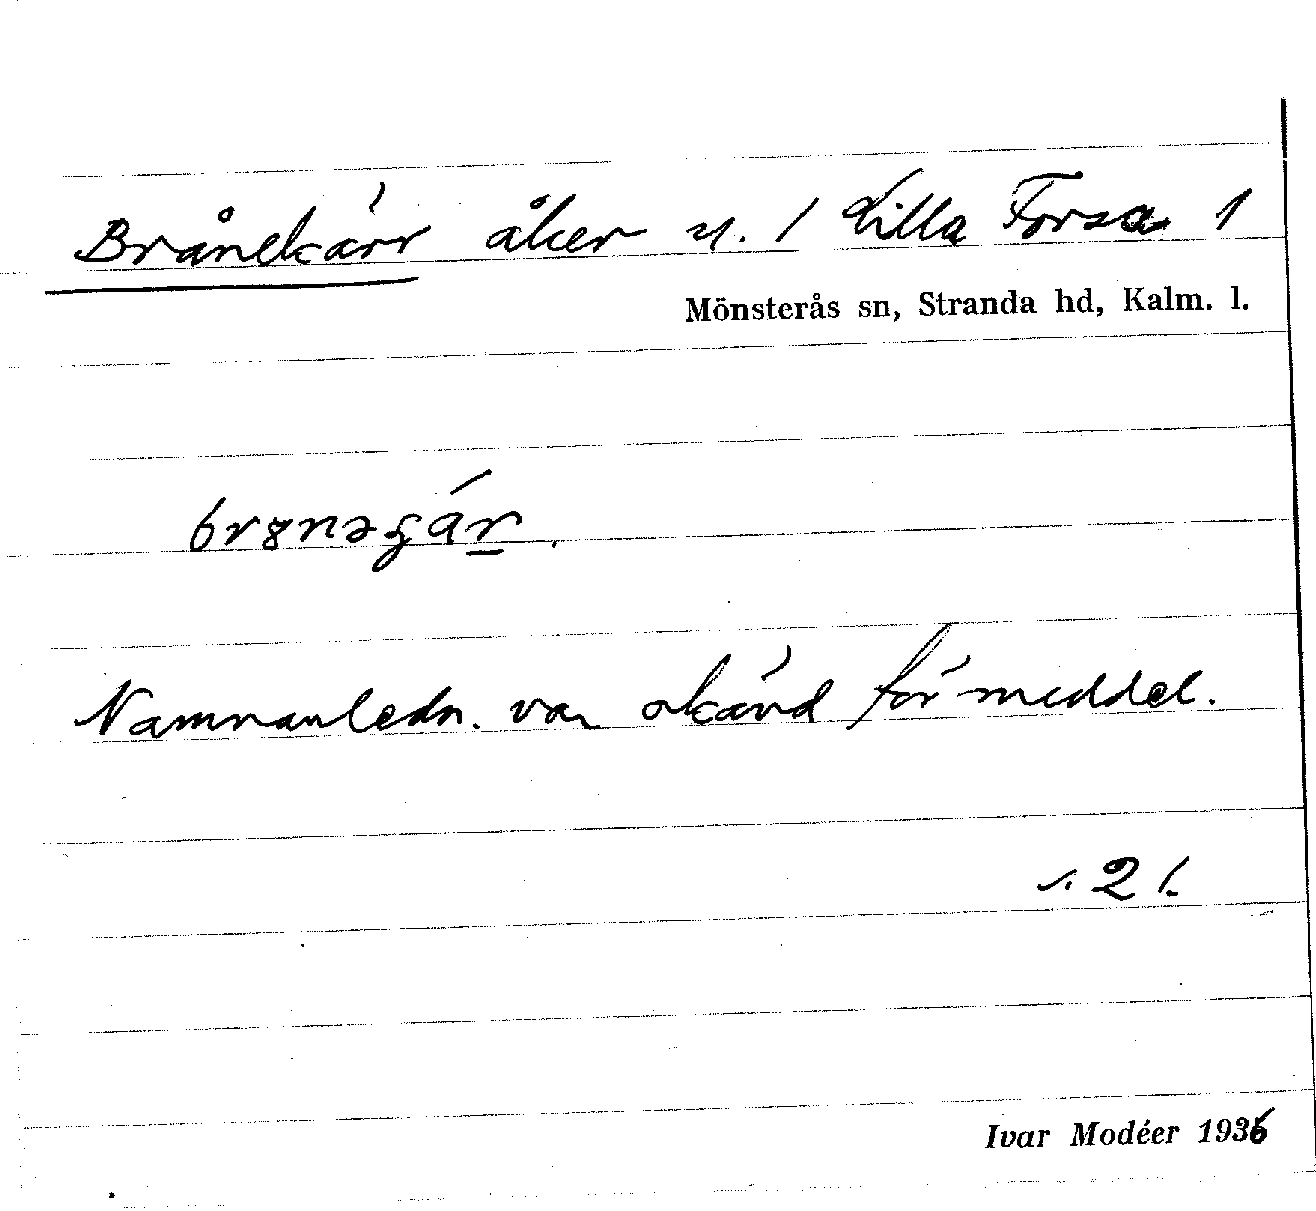 Brånekärr åker n. 1 Lilla Forsa 1
Mönsterås sn, Stranda hd, Kalm. l.
Namnanledn. var okänd för meddel.
s. 21.
Ivar Modéer 1936